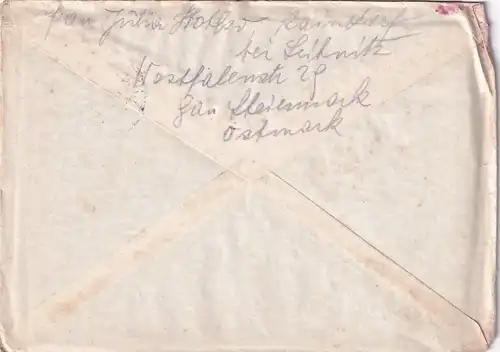 Frau Julia Kaindorf
bei Leibnitz
Westfalenstr 29
Gau Steiermark
Ostmark